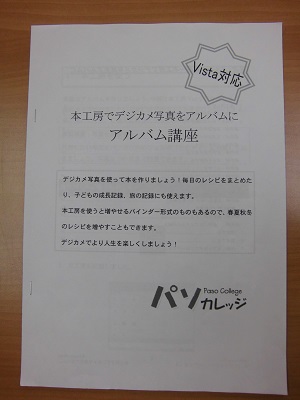 Vista対応
本工房でデジカメ写真をアルバムに
アルバム講座
デジカメ写真を使って本を作りましょう！毎日のレシピをまとめた
り、子どもの成長記録、旅の記録にも使えます。
本工房を使うと増やせるバインダー形式のものもあるので、春夏秋冬
のレシピを増やすこともできます。
デジカメでより人生を楽しくしましょう！
パソ
Paso College
カレッジ